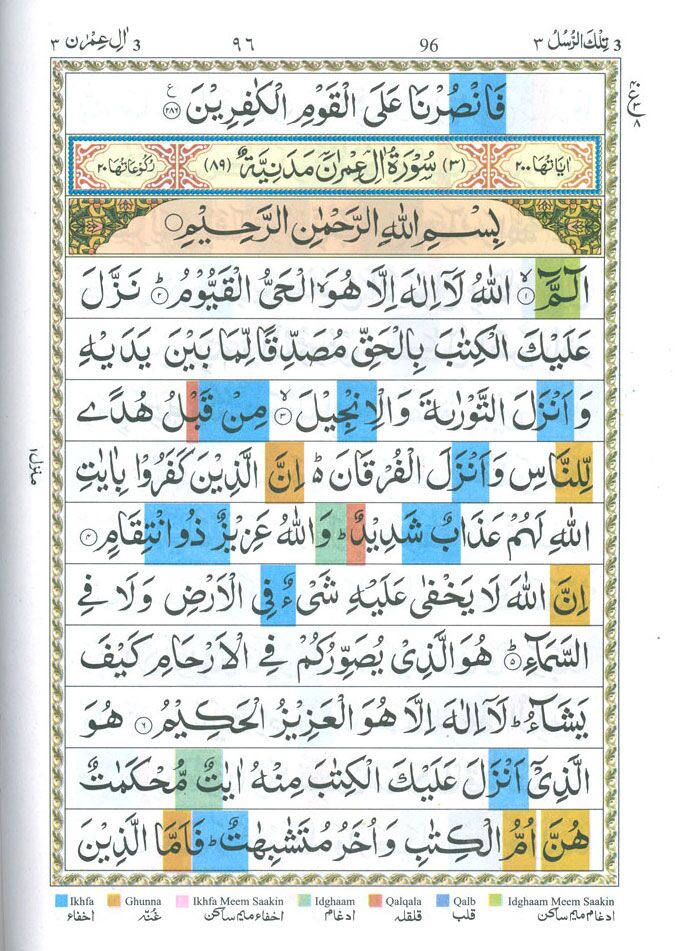 3 تِلْكَ الرُّسُلُ ٣
96
٩٦
3 اٰلِ عِمْرٰن ٣
فَانْصُرْنَا عَلَى الْقَوْمِ الْكٰفِرِيْنَ ﴿٢٨٦﴾ ع
اٰيَاتُهَا ٢٠٠ (٣) سُوْرَةُ اٰلِ عِمْرٰنَ مَدَنِيَّةٌ (٨٩) رُكُوْعَاتُهَا ٢٠
بِسْمِ اللّٰهِ الرَّحْمٰنِ الرَّحِيْمِ
الٓمّٓ ۙ﴿١﴾ اللّٰهُ لَاۤ اِلٰهَ اِلَّا هُوَ ۙ الْحَيُّ الْقَيُّوْمُ ؕ﴿٢﴾ نَزَّلَ
عَلَيْكَ الْكِتٰبَ بِالْحَقِّ مُصَدِّقًا لِّمَا بَيْنَ يَدَيْهِ
وَ اَنْزَلَ التَّوْرٰىةَ وَالْاِنْجِيْلَ ۙ﴿٣﴾ مِنْ قَبْلُ هُدًى
لِّلنَّاسِ وَاَنْزَلَ الْفُرْقَانَ ؕ اِنَّ الَّذِيْنَ كَفَرُوْا بِاٰيٰتِ
اللّٰهِ لَهُمْ عَذَابٌ شَدِيْدٌ ؕ وَاللّٰهُ عَزِيْزٌ ذُو انْتِقَامٍ ﴿٤﴾
اِنَّ اللّٰهَ لَا يَخْفٰى عَلَيْهِ شَىْءٌ فِى الْاَرْضِ وَلَا فِى
السَّمَآءِ ؕ﴿٥﴾ هُوَ الَّذِىْ يُصَوِّرُكُمْ فِى الْاَرْحَامِ كَيْفَ
يَشَآءُ ؕ لَاۤ اِلٰهَ اِلَّا هُوَ الْعَزِيْزُ الْحَكِيْمُ ﴿٦﴾ هُوَ
الَّذِىْۤ اَنْزَلَ عَلَيْكَ الْكِتٰبَ مِنْهُ اٰيٰتٌ مُّحْكَمٰتٌ
هُنَّ اُمُّ الْكِتٰبِ وَ اُخَرُ مُتَشٰبِهٰتٌ ؕ فَاَمَّا الَّذِيْنَ
منزل ١
Ikhfa Ghunna Ikhfa Meem Saakin Idghaam Qalqala Qalb Idghaam Meem Saakin
اخفاء غُنّہ اخفاء میم ساکن ادغام قلقلہ قلب ادغام میم ساکن